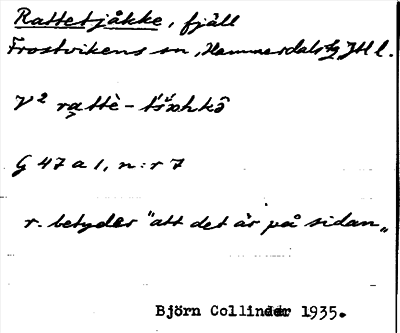 Rattetjåkke, fjäll
Frostvikens sn, Hammerdals tg, Jtl l.
V² 
G 47 a 1, n:r 7
r. betyder "att det är på sidan"
Björn Collinder 1935.